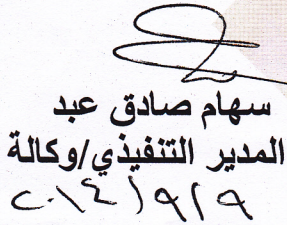 سهام صادق عبد
المدير التنفيذي/وكالة
٢٠١٤/٩/٩